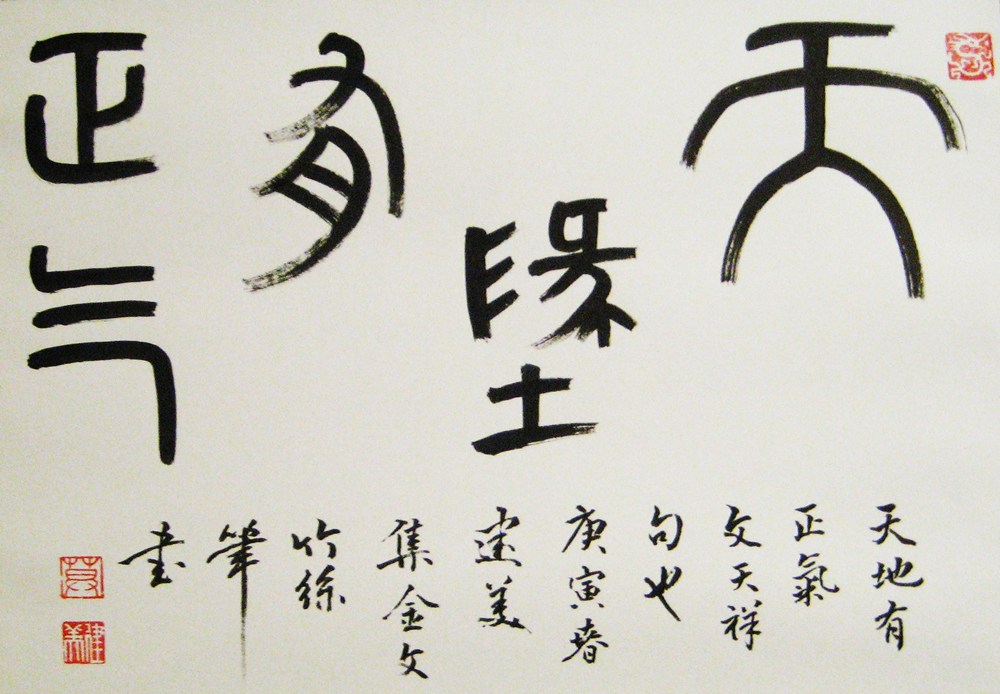 天
墬
有
正气
天地有
正氣
文天祥
句也
庚寅春
建美
集金文
竹絲
筆
書
建美